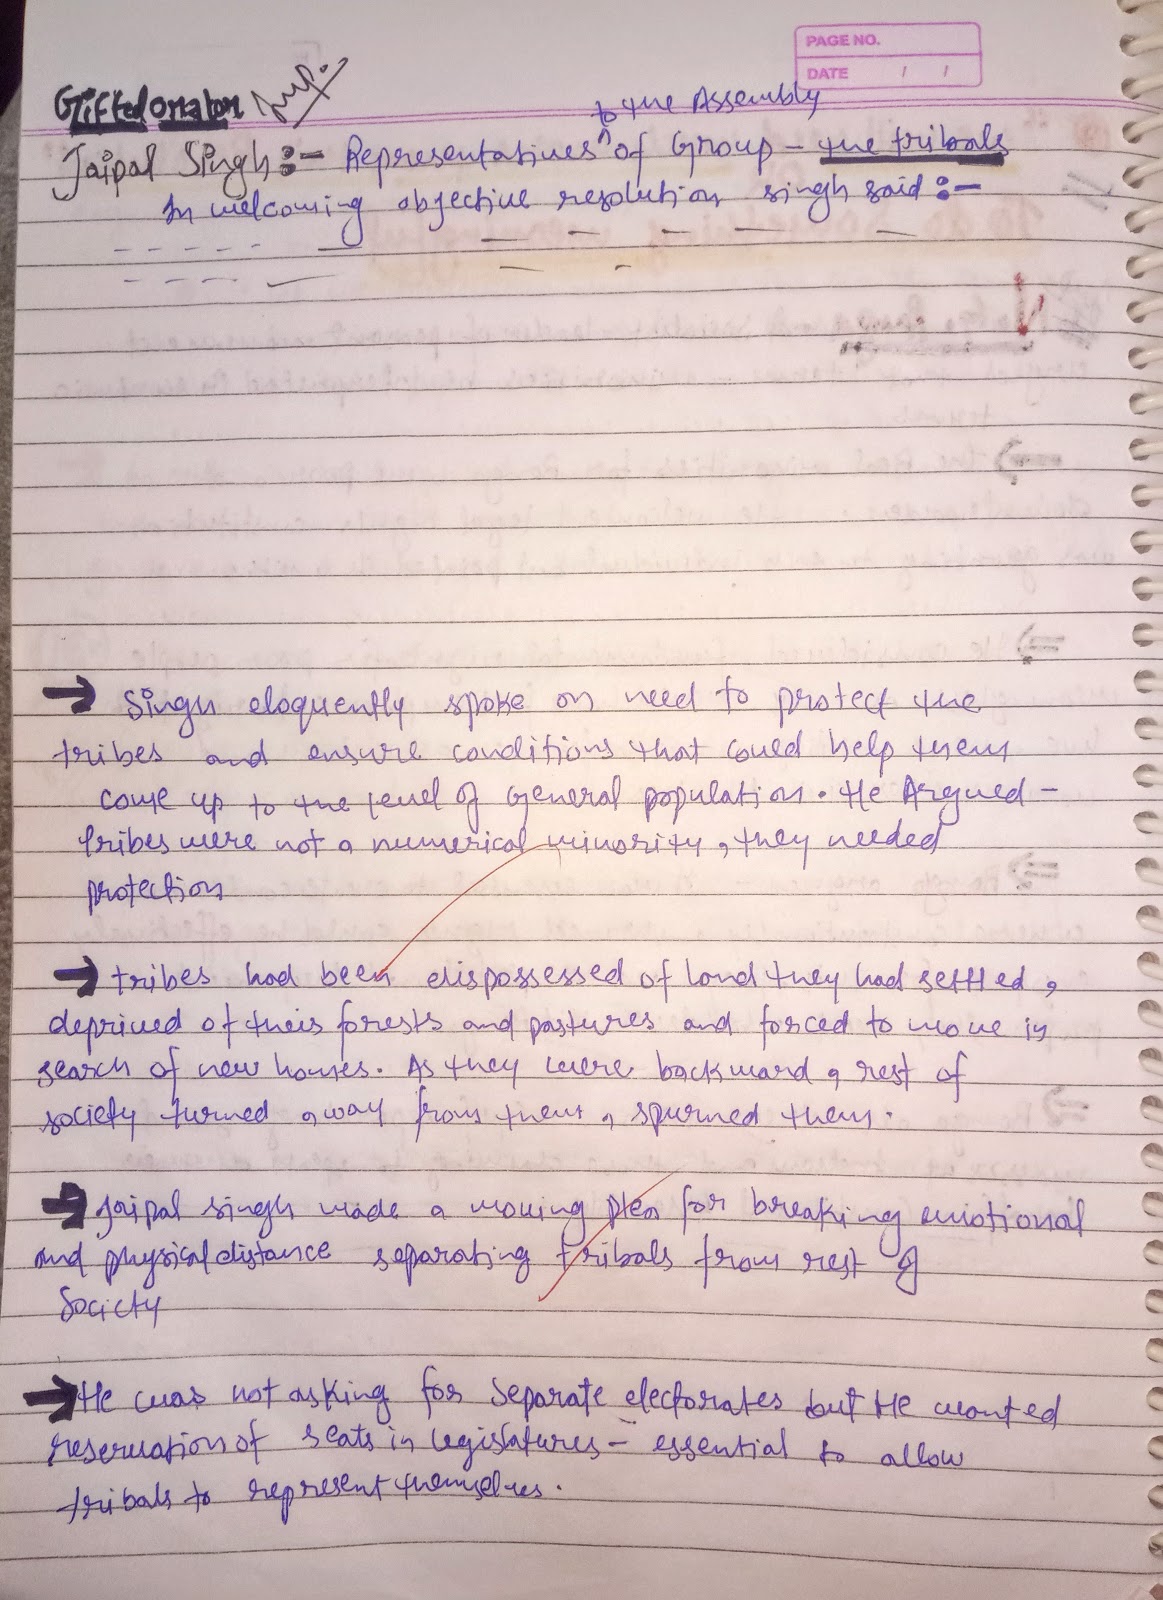 PAGE NO.
DATE / /
Gifted orator Imp.
to the Assembly
Jaipal Singh :- Representatives ^ of Group - the tribals
In welcoming objective resolution singh said :-
→ Singh eloquently spoke on need to protect the
tribes and ensure conditions that could help them
come up to the level of General population. He Argued -
tribes were not a numerical minority, they needed
protection
→ tribes had been dispossessed of land they had settled,
deprived of their forests and pastures and forced to move in
search of new homes. As they were backward, rest of
society turned away from them, spurned them.
→ Jaipal singh made a moving plea for breaking emotional
and physical distance separating tribals from rest of
Society
→ He was not asking for separate electorates but He wanted
reservation of seats in legislatures - essential to allow
tribals to represent themselves.